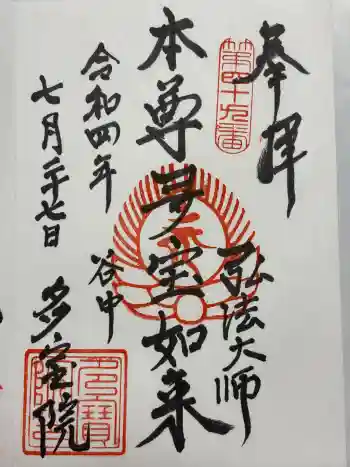 奉拝
第四十九番
弘法大師
本尊多宝如来
令和四年
七月二十七日
谷中
多宝院
多寶院